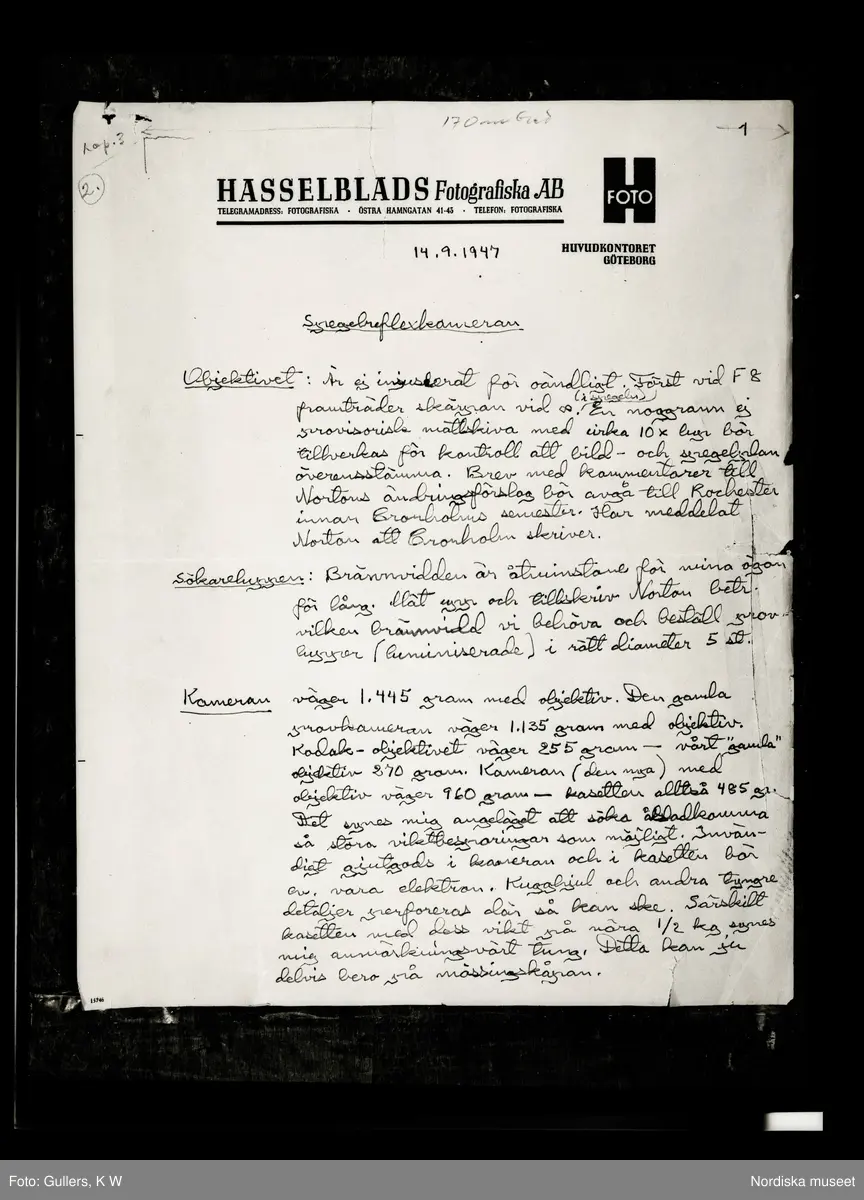 170 mm bred
1
kap. 3
2.
HASSELBLADS Fotografiska AB
TELEGRAMADRESS: FOTOGRAFISKA · ÖSTRA HAMNGATAN 41-45 · TELEFON: FOTOGRAFISKA
H FOTO
14.9.1947
HUVUDKONTORET
GÖTEBORG
Spegelreflexkameran
Objektivet: Är ej injusterat för oändligt. Först vid F 8
framträder skärpan vid ∞. (i spegeln) En noggrann ej
provisorisk mattskiva med cirka 10x lupp bör
tillverkas för kontroll att bild- och spegelplan
överensstämma. Brev med kommentarer till
Nortons ändringsförslag bör avgå till Rochester
innan Cronholms semester. Har meddelat
Norton att Cronholm skriver.
Sökareluppen: Brännvidden är åtminstone för mina ögon
för lång. Mät upp och tillskriv Norton betr.
vilken brännvidd vi behöva och beställ prov-
lupper (luminiserade) i rätt diameter 5 st.
Kameran väger 1.445 gram med objektiv. Den gamla
provkameran väger 1.135 gram med objektiv.
Kodak-objektivet väger 255 gram — vårt "gamla"
objektiv 270 gram. Kameran (den nya) med
objektiv väger 960 gram — kasetten alltså 485 gr.
Det synes mig angeläget att söka åstadkomma
så stora viktbesparingar som möjligt. Invän-
digt gjutgods i kameran och i kasetten bör
ev. vara elektron. Kugghjul och andra tyngre
detaljer perforeras där så kan ske. Särskilt
kasetten med dess vikt på nära 1/2 kg synes
mig anmärkningsvärt tung. Detta kan ju
delvis bero på mässingskåpan.
15746
Foto: Gullers, K W
Nordiska museet